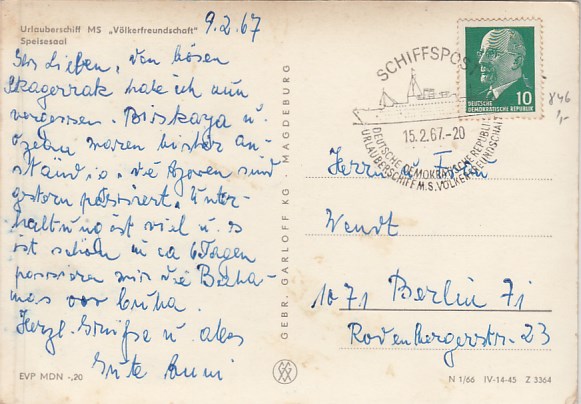 Urlauberschiff MS „Völkerfreundschaft"
Speisesaal
9.2.67
Ihr Lieben, den bösen
Skagerrak habe ich nun
vergessen. Biskaya u.
Ozean waren bisher an-
ständig. Die Azoren sind
gestern passiert. Unter-
haltung ist viel u. es
ist schön in ca 6 Tagen
passieren wir die Baha-
mas vor Cuba.
Herzl. Grüße u. alles
Gute
EVP MDN -,20
GEBR. GARLOFF KG · MAGDEBURG
SCHIFFSPOST
15.2.67.-20
DEUTSCHE DEMOKRATISCHE REPUBLIK
URLAUBERSCHIFF M.S. VÖLKERFREUNDSCHAFT
10
DEUTSCHE
DEMOKRATISCHE REPUBLIK
846
1,-
Herrn u. Frau
Wendt
1071 Berlin 71
Rodenbergerstr. 23
N 1/66 IV-14-45 Z 3364